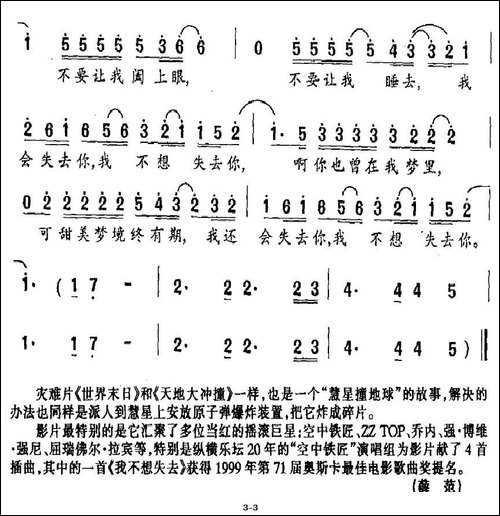 1 5 5 5 5 5 3 6 6 0 5 5 5 5 5 4 3 3 2 1
不要让我阖上眼, 不要让我 睡去, 我
2 6 1 6 5 6 3 2 1 1 5 2 | 1· 5 3 3 3 3 3 2 2 2
会失去你,我 不想 失去你, 啊你也曾在我梦里,
0 2 5 5 5 5 5 4 3 2 3 2 | 1 6 1 6 5 6 3 2 1 1 5 2
可甜美梦境终有期, 我还 会失去你,我 不想 失去你。
1· ( 1 7 - | 2· 2 2· 2 3 | 4· 4 4 5
1· 1 7 - | 2· 2 2· 2 3 | 4· 4 4 5 )
灾难片《世界末日》和《天地大冲撞》一样,也是一个“慧星撞地球”的故事,解决的
办法也同样是派人到慧星上安放原子弹爆炸装置,把它炸成碎片。
影片最特别的是它汇聚了多位当红的摇滚巨星;空中铁匠、ZZ TOP、乔内、强·博维
·强尼、屈瑞佛尔·拉宾等,特别是纵横乐坛20年的“空中铁匠”演唱组为影片献了4首
插曲,其中的一首《我不想失去》获得1999年第71届奥斯卡最佳电影歌曲奖提名。
(薛范)
3-3